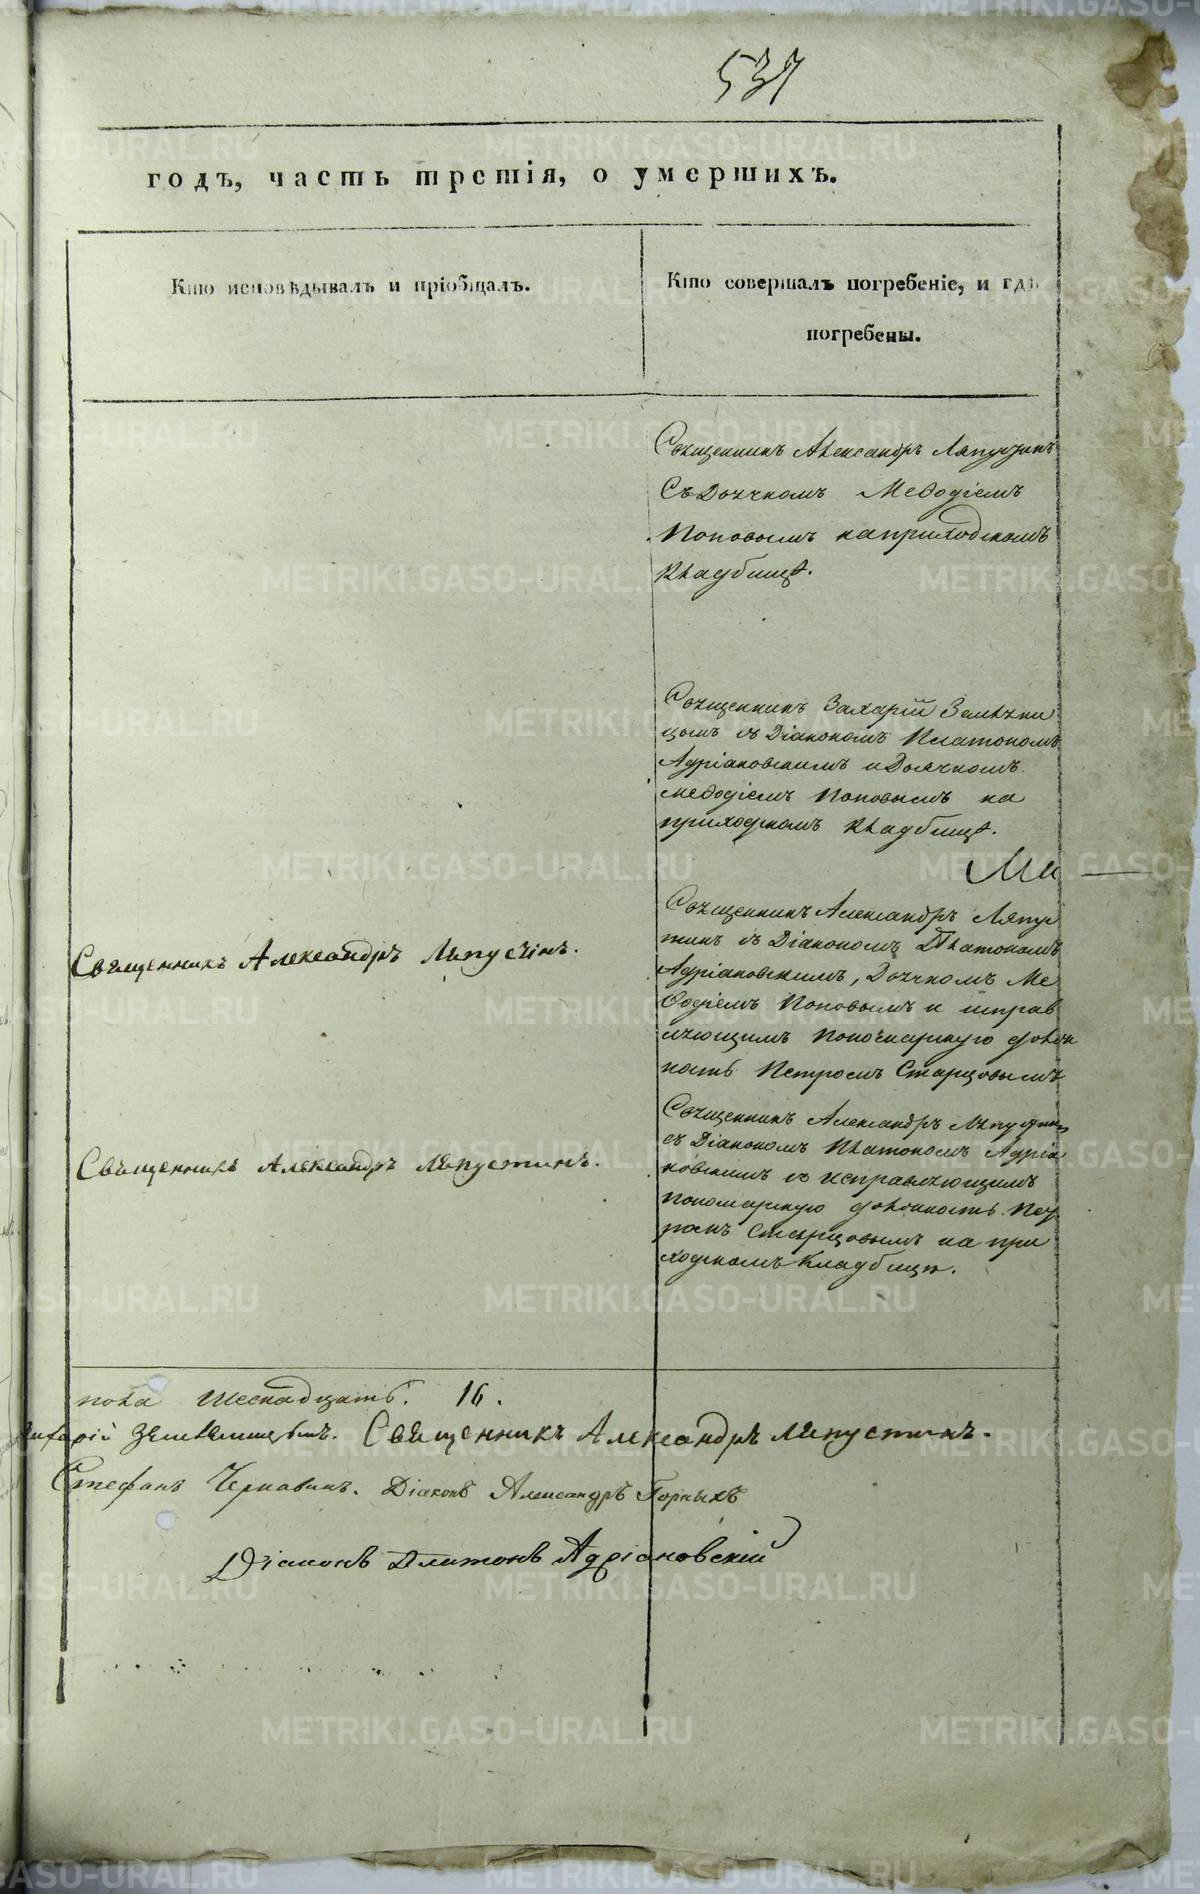 537
годъ, часть третія, о умершихъ.
Кто исповѣдывалъ и пріобщалъ.
Кто совершалъ погребеніе, и гдѣ
погребены.
Священникъ Александръ Ляпустинъ
Съ Дьячкомъ Меѳодіемъ
Поповымъ на приходскомъ
Кладбищѣ.
Священникъ Захарій Земляни
цынъ съ Діакономъ Платономъ
Адріановскимъ и Дьячкомъ
Меѳодіемъ Поповымъ на
приходскомъ Кладбищѣ.
Ми
Священникъ Александръ Ляпустинъ.
Священникъ Александръ Ляпус
тинъ съ Діакономъ Платономъ
Адріановскимъ, Дьячкомъ Ме
ѳодіемъ Поповымъ и исправ
ляющимъ Пономарскую долж
ность Петромъ Старцовымъ
Священникъ Александръ Ляпустинъ.
Священникъ Александръ Ляпустинъ
съ Діакономъ Платономъ Адріа
новскимъ и исправляющимъ
пономарскую должность Пет
ромъ Старцовымъ на при
ходскомъ Кладбищѣ.
пола Шеснадцать. 16.
Захарій Земляницынъ. Священникъ Александръ Ляпустинъ.
Стефанъ Чернавинъ. Діаконъ Александръ Горныхъ
Діаконъ Платонъ Адріановскій
METRIKI.GASO-URAL.RU